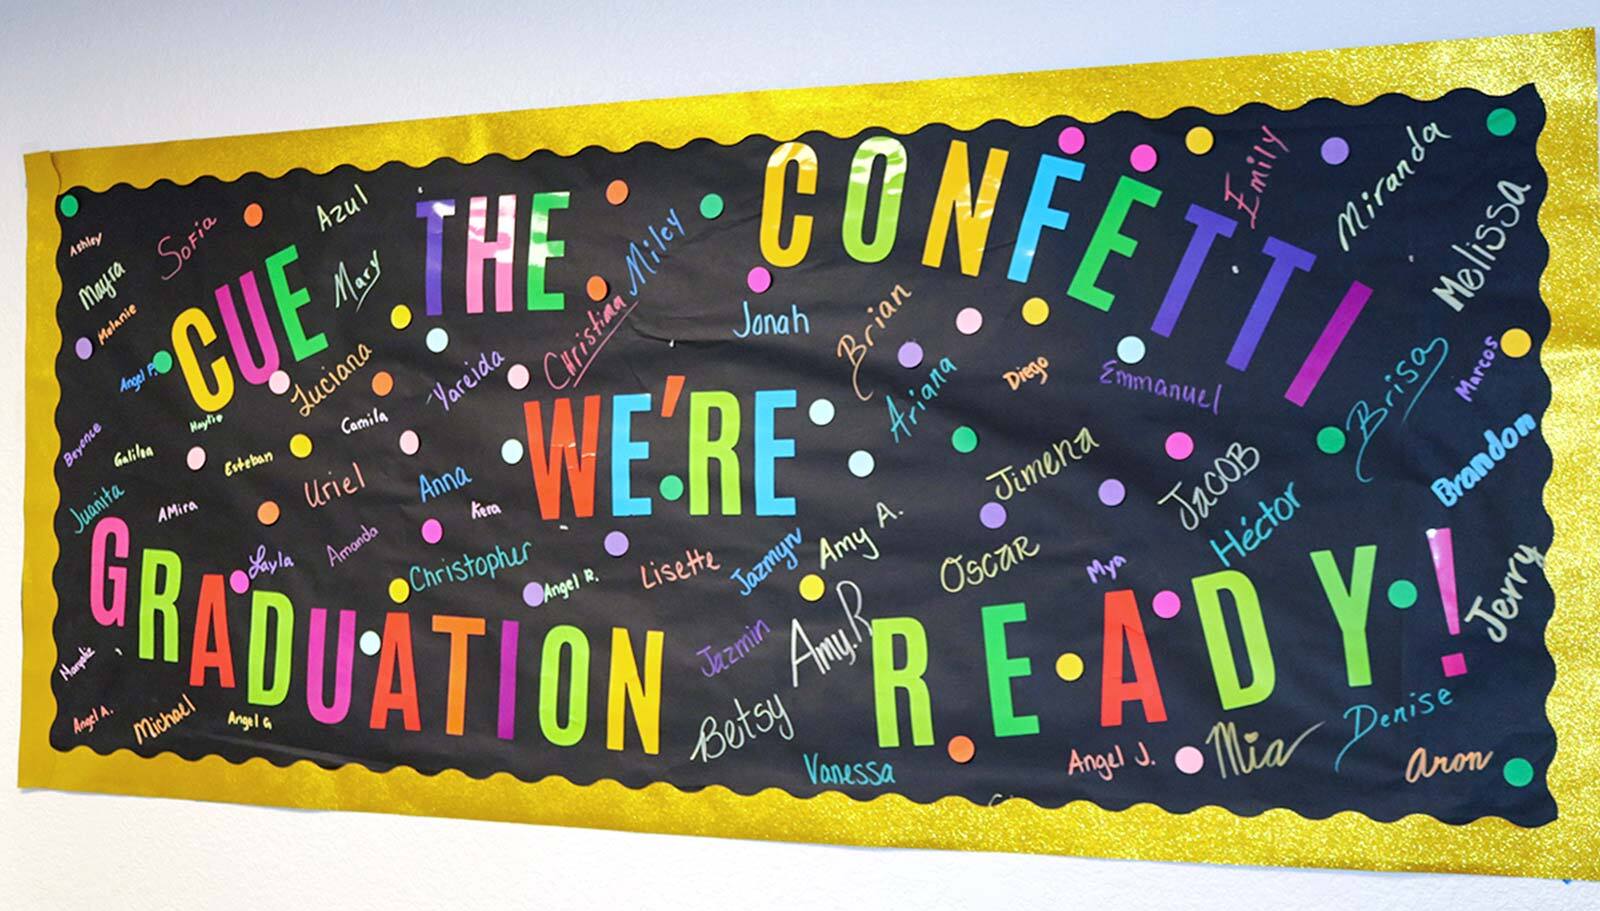 CUE THE CONFETTI
WE'RE
GRADUATION READY!
Ashley
Sofia
Azul
Mayra
Mary
Melanie
Angel P.
Luciana
Miley
Christina
Yareida
Jonah
Brian
Emily
Miranda
Melissa
Ariana
Diego
Emmanuel
Brisa
Marcos
Beyence
Camila
Esteban
Juanita
AMira
Uriel
Anna
Kera
Jimena
JACOB
Brandon
Layla
Amanda
Christopher
Angel R.
Lisette
Jazmyn
Amy A.
Oscar
Mya
Héctor
Jerry
Jazmin
Amy.R
Angel A.
Michael
Angel G
Betsy
Vanessa
Angel J.
Mia
Denise
Aron